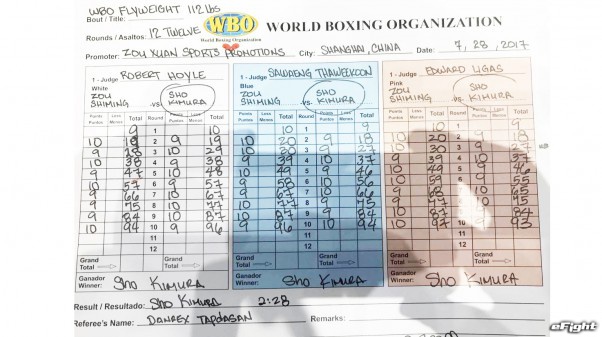 WBO FLYWEIGHT 112 lbs
Bout / Title:
Rounds / Asaltos: 12 TWELVE
WBO
World Boxing Organization
WORLD BOXING ORGANIZATION
Promoter: ZOU XUAN SPORTS PROMOTIONS City: SHANGHAI, CHINA Date: 7, 28, 2017
1 - Judge ROBERT HOYLE
White
ZOU SHIMING vs. SHO KIMURA
Points Puntos Less Menos Total Round Points Puntos Less Menos Total
9 1 10
10 19 2 9 19
9 28 3 10 29
10 38 4 9 38
9 47 5 10 48
10 57 6 9 57
9 66 7 10 67
9 75 8 10 77
9 84 9 10 87
10 94 10 9 96
11
12
Grand Total Grand Total
Ganador
Winner: Sho KIMURA
1 - Judge SAWAENG THAWEEKOON
Blue
ZOU SHIMING vs. SHO KIMURA
Points Puntos Less Menos Total Round Points Puntos Less Menos Total
10 1 9
10 20 2 9 18
10 30 3 9 27
9 39 4 10 37
10 49 5 9 46
9 58 6 10 56
9 67 7 10 66
10 77 8 9 75
10 87 9 9 84
9 96 10 10 94
11
12
Grand Total Grand Total
Ganador
Winner: Sho KIMURA
1 - Judge EDWARD LIGAS
Pink
ZOU SHIMING vs. SHO KIMURA
Points Puntos Less Menos Total Round Points Puntos Less Menos Total
10 1 9
10 20 2 9 18
10 30 3 9 27
9 39 4 10 37
10 49 5 9 46
6 9 55
9 68 7 10 65
9 77 8 10 75
10 87 9 9 84
10 97 10 9 93
11
12
Grand Total Grand Total
Ganador
Winner: Sho KIMURA
Result / Resultado: Sho KIMURA 2:28
Referee's Name: DANREX TAPDASAN Remarks:
eFight